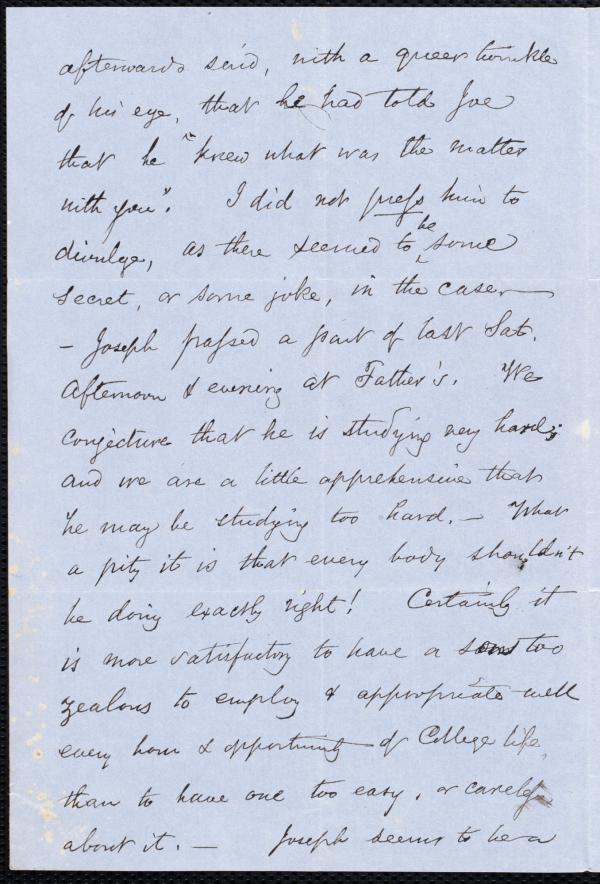 afterwards said, with a queer twinkle
of his eye, that he had told Joe
that he "knew what was the matter
with you". I did not press him to
divulge, as there seemed to be some
secret, or some joke, in the case. —
- Joseph passed a part of last Sat.
Afternoon & evening at Father's. We
conjecture that he is studying very hard;
and we are a little apprehensive that
he may be studying too hard. - What
a pity it is that every body shouldn't
be doing exactly right! Certainly it
is more satisfactory to have a son too
zealous to employ & appropriate well
every hour & opportunity of College life,
than to have one too easy, or careless
about it. - Joseph seems to be a